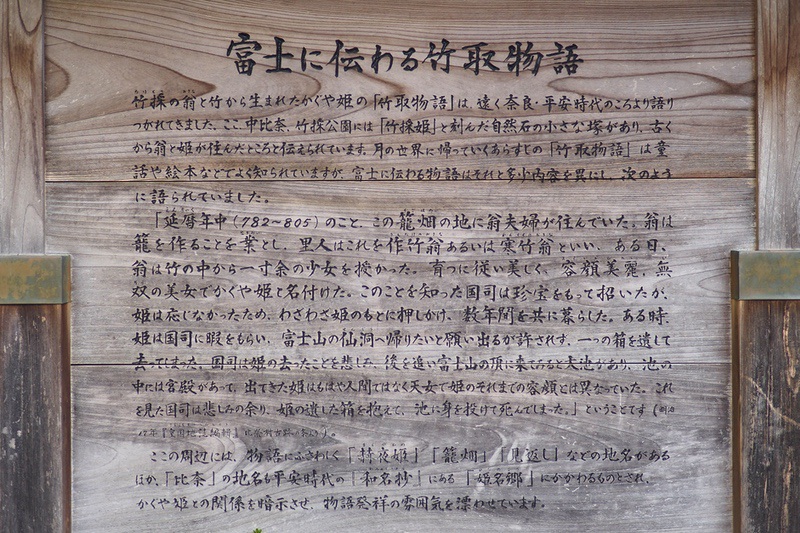 富士に伝わる竹取物語
竹採の翁と竹から生まれたかぐや姫の「竹取物語」は、遠く奈良・平安時代のころより語り
つがれてきました。ここ、中比奈、竹採公園には「竹採姫」と刻んだ自然石の小さな塚があり、古く
から翁と姫が住んだところと伝えられています。月の世界に帰っていくあらすじの「竹取物語」は童
話や絵本などでよく知られていますが、富士に伝わる物語はそれと多少内容を異にし、次のよう
に語られていました。
「延暦年中(782〜805)のこと、この籠畑の地に翁夫婦が住んでいた。翁は
籠を作ることを業とし、里人はこれを作竹翁あるいは寒竹翁といい、ある日、
翁は竹の中から一寸余の少女を授かった。育つに従い美しく、容顔美麗、無
双の美女でかぐや姫と名付けた。このことを知った国司は珍宝をもって招いたが、
姫は応じなかったため、わざわざ姫のもとに押しかけ、数年間を共に暮らした。ある時、
姫は国司に暇をもらい、富士山の仙洞へ帰りたいと願い出るが許されず、一つの箱を遺して
去ってしまった。国司は姫の去ったことを悲しみ、後を追い富士山の頂に来てみると大池があり、池の
中には宮殿があって、出てきた姫はもはや人間ではなく天女で姫のそれまでの容顔とは異なっていた。これ
を見た国司は悲しみの余り、姫の遺した箱を抱えて、池に身を投げて死んでしまった。」ということです(明治
ここの周辺には、物語にふさわしく「赫夜姫」「籠畑」「見返し」などの地名がある
ほか、「比奈」の地名も平安時代の「和名抄」にある「姫名郷」にかかわるものとされ、
かぐや姫との関係を暗示させ、物語発祥の雰囲気を漂わせています。